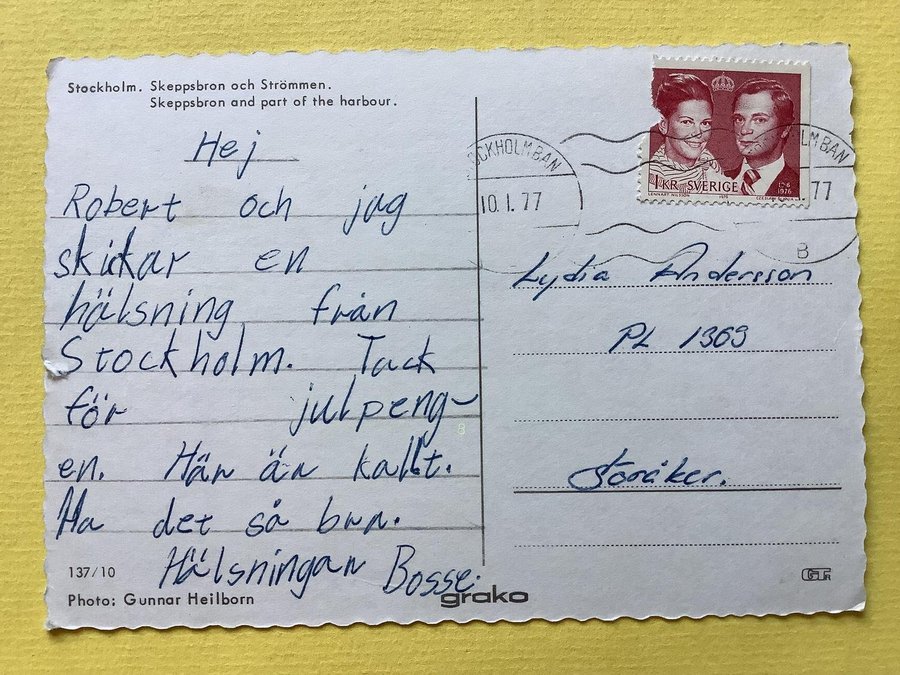 Stockholm. Skeppsbron och Strömmen.
Skeppsbron and part of the harbour.
Hej
Robert och jag
skickar en
hälsning från
Stockholm. Tack
för julpeng-
en. Här är kallt.
Ha det så bra.
Hälsningar Bosse.
137/10
Photo: Gunnar Heilborn
grako
STOCKHOLM BAN
10.1.77
LM BAN
77
B
1 KR SVERIGE
1976
LENNART NILSSON
Lydia Andersson
PL 1369
Storåker.